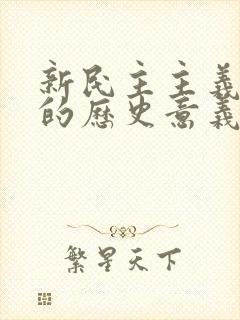 新民主主義
的歷史意義
繁星天下